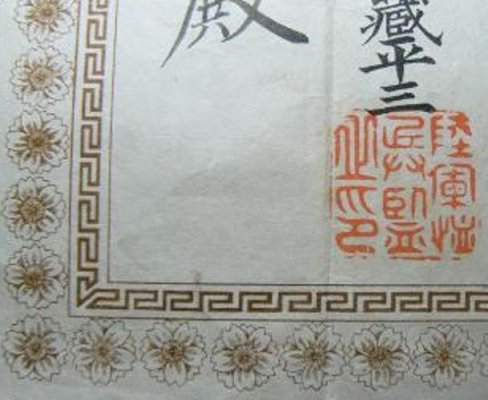 藏平三
陸軍恤
兵監
之印
殿